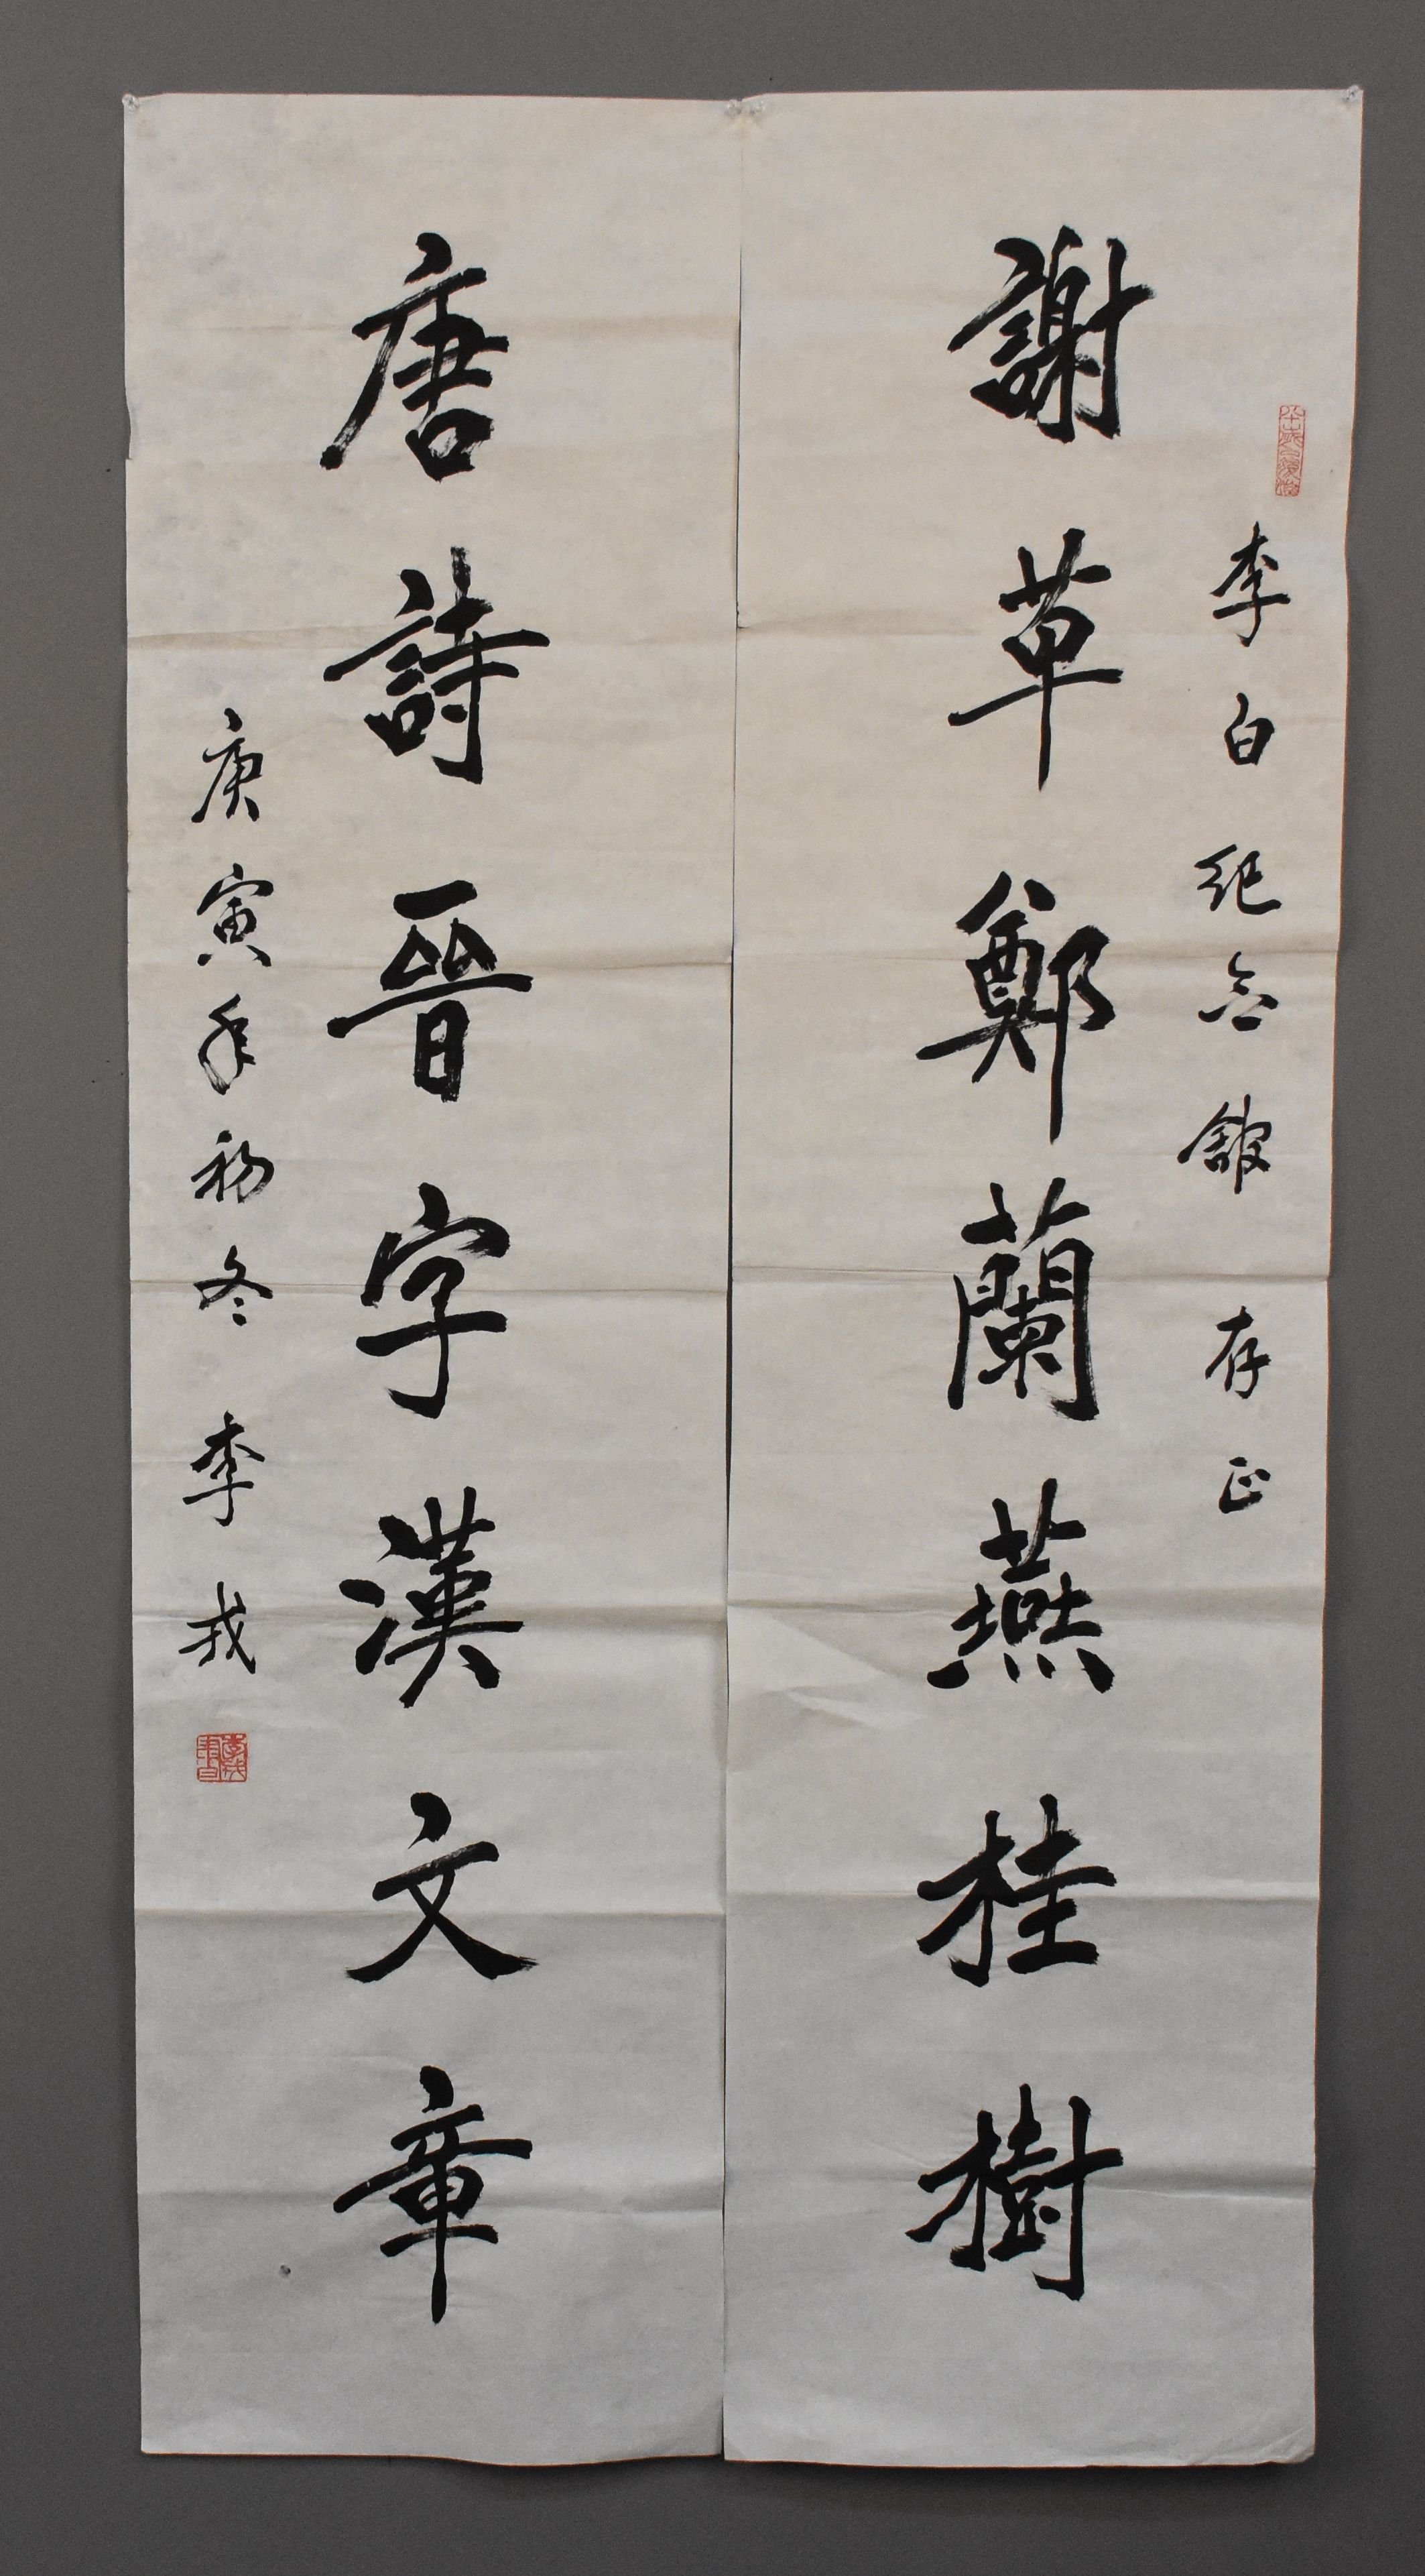 李白紀念館存正
謝草鄭蘭燕桂樹
唐詩晉字漢文章
庚寅年初冬李戎